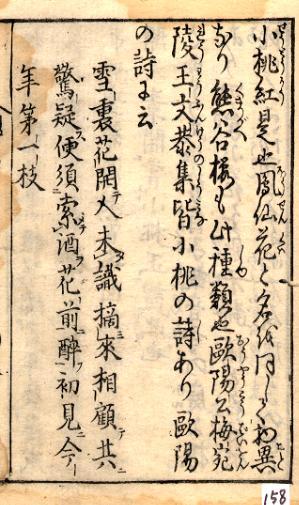 小桃紅是也鳳仙花と名を同しくして物異
なり熊谷桜も此種類也歐陽公梅宛
陵王文恭集皆小桃の詩あり歐陽
の詩に云
雪裏花開人未識摘來相顧共
驚疑便須索酒花前醉初見今
年第一枝
158